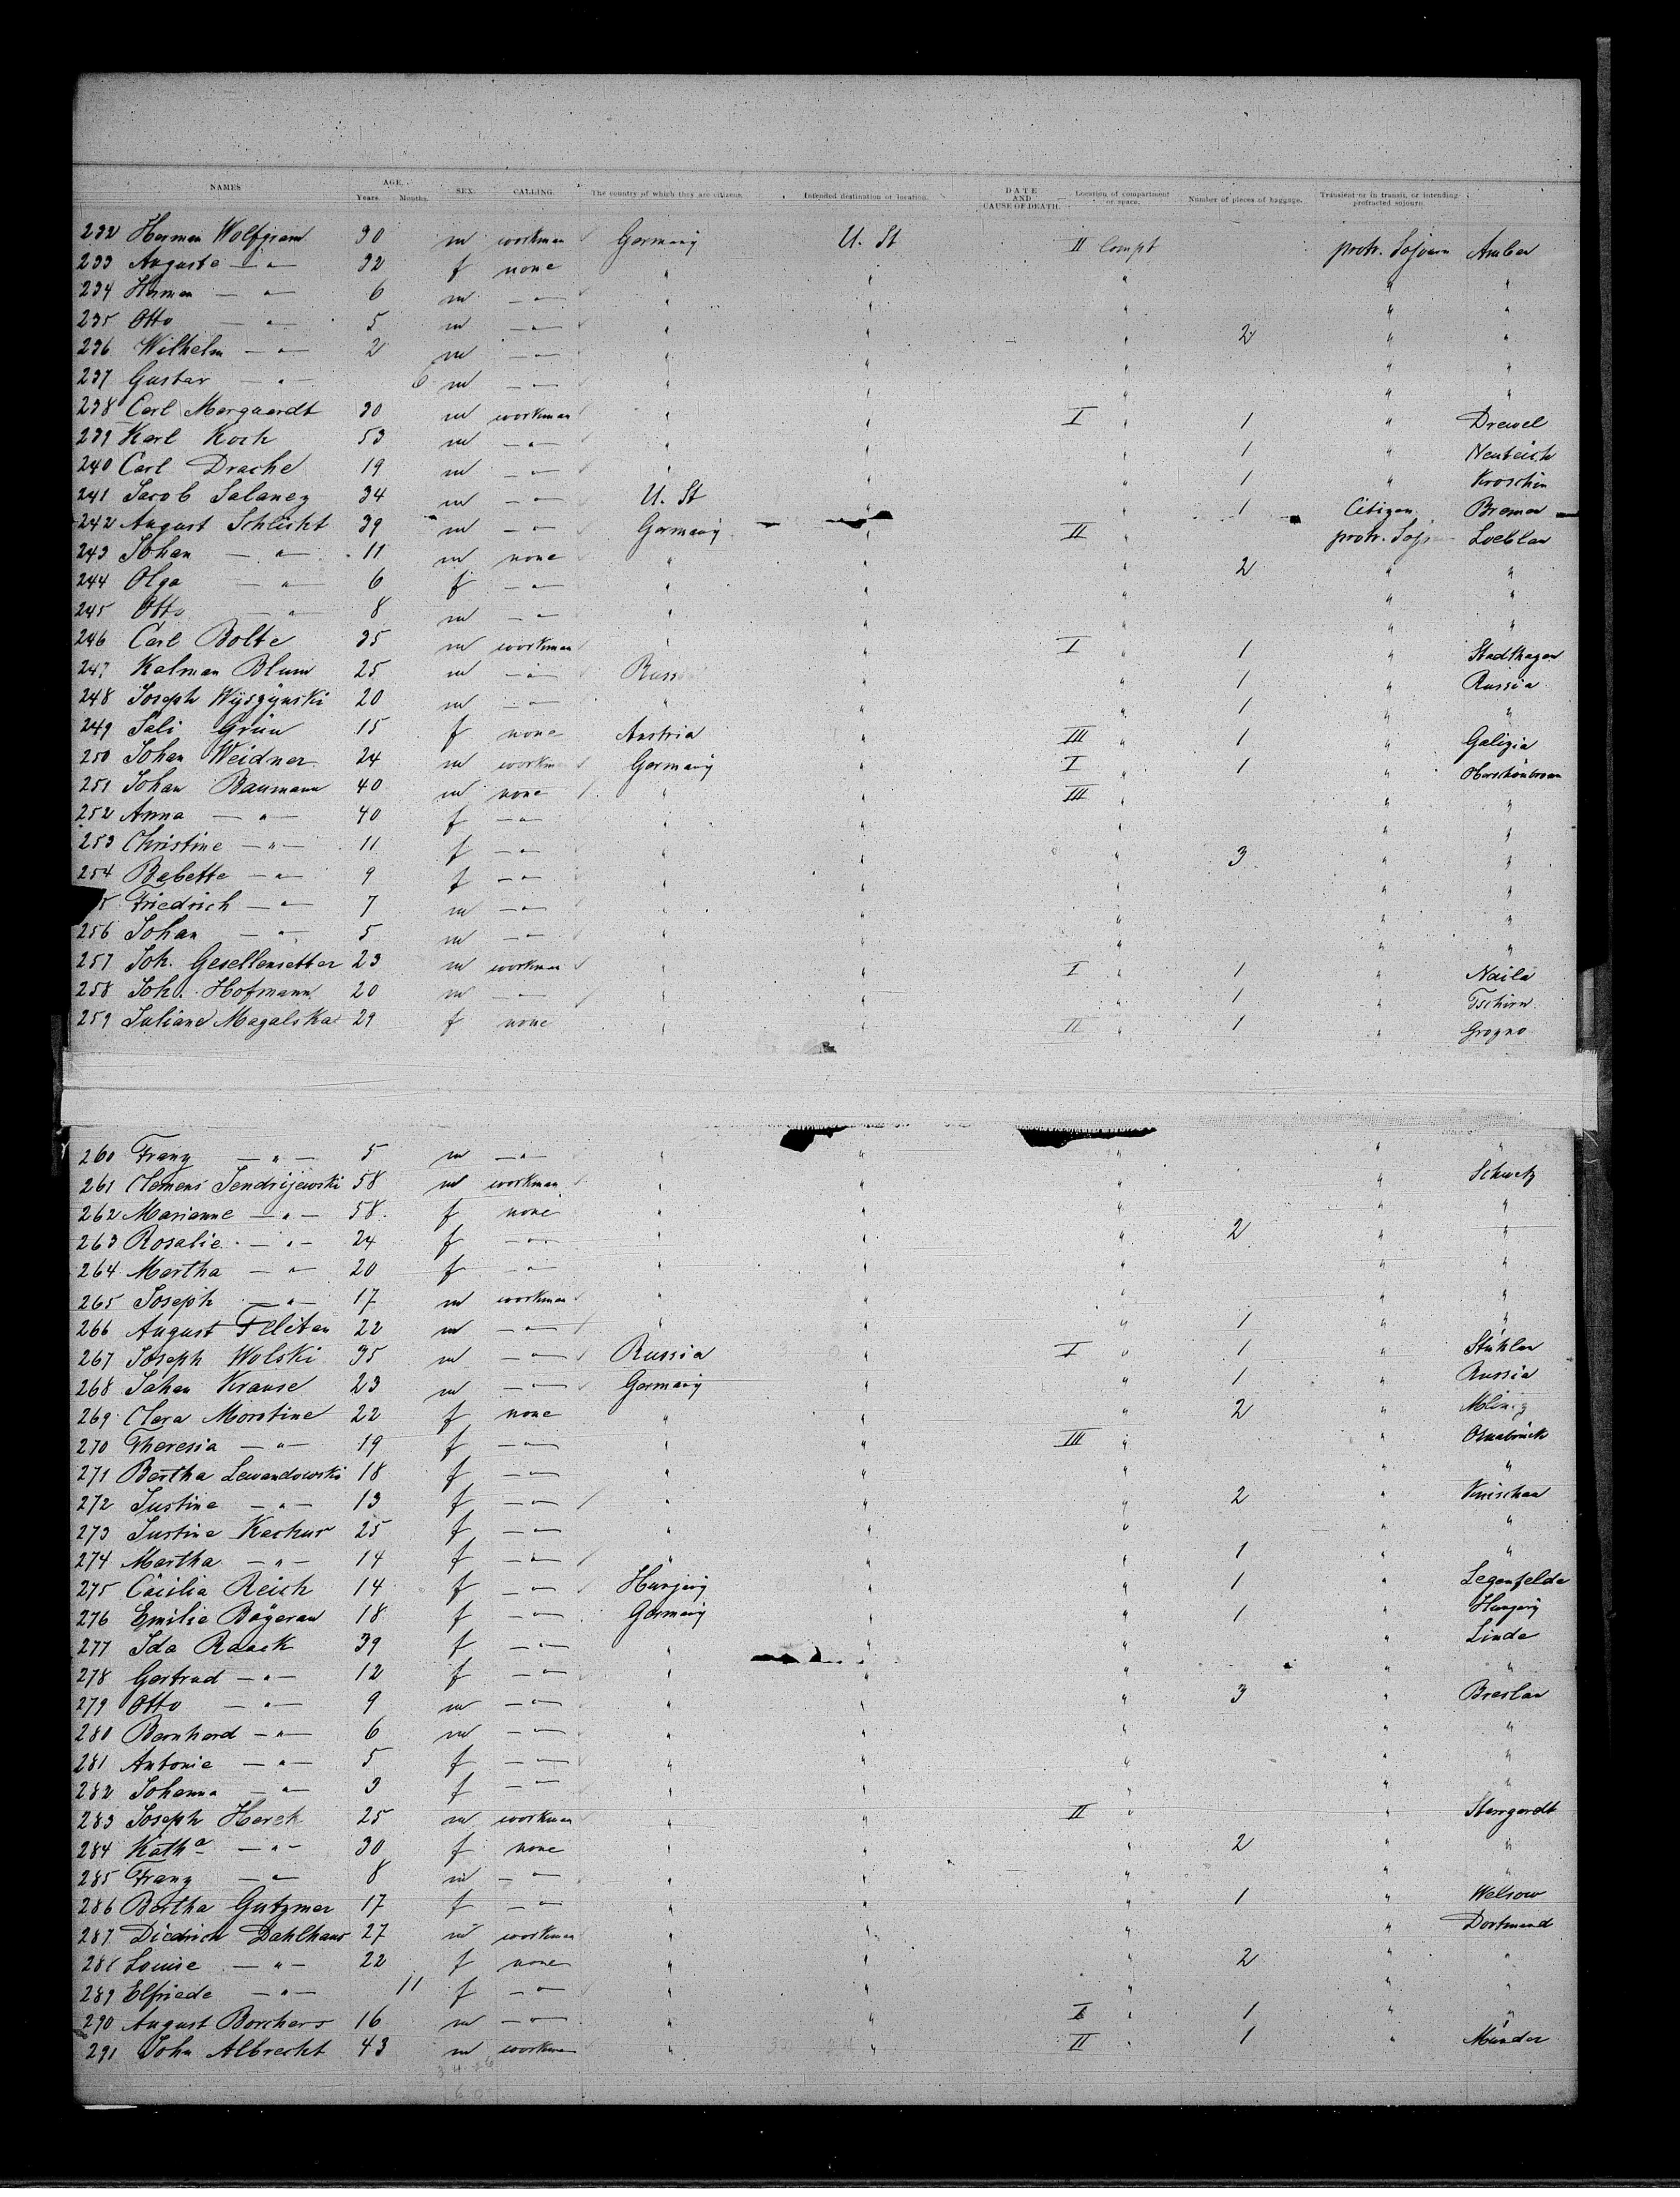 NAMES AGE. Years. Months. SEX. CALLING. The country of which they are citizens. Intended destination or location. DATE AND CAUSE OF DEATH. Location of compartment or space. Number of pieces of baggage. Transient or in transit, or intending protracted sojourn.
232 Herman Wolfgram 30 m workman Germany U. St II Compt protr. Sojourn Amber
233 Auguste — " — 32 f none " " " " "
234 Herman — " — 6 m — " — " " " " "
235 Otto — " — 5 m — " — " " " 2 " "
236 Wilhelm — " — 2 m — " — " " " " "
237 Gustav — " — 6 m — " — " " " " "
238 Carl Marquardt 30 m workman " " I " 1 " Drewel
239 Karl Koch 53 m — " — " " " 1 " Neuteich
240 Carl Drache 19 m — " — " " " 1 " Kroschin
241 Jacob Salaney 34 m — " — U. St " " 1 Citizen Bremen
242 August Schlicht 39 m — " — Germany " II " protr. Soj Loeblau
243 Johan — " — 11 m none " " " 2 " "
244 Olga — " — 6 f — " — " " " " "
245 Otto — " — 8 m — " — " " " " "
246 Carl Bolte 35 m workman " " I " 1 " Stadthagen
247 Kalman Blum 25 m — " — Russ " " 1 " Russia
248 Joseph Wysgynski 20 m — " — " " " 1 " "
249 Sali Grün 15 f none Austria " III " 1 " Galizia
250 Johan Weidner 24 m workm Germany " I " 1 "
251 Johan Baumann 40 m none " " III " " "
252 Anna — " — 40 f — " — " " " " "
253 Christine — " — 11 f — " — " " " 3 " "
254 Babette — " — 9 f — " — " " " " "
5 Friedrich — " — 7 m — " — " " " " "
256 Johan — " — 5 m — " — " " " " "
257 Joh. Gesellensetter 23 m workman " " I " 1 " Naila
258 Joh. Hofmann 20 m — " — " " " 1 " Tschirn
259 Juliane Magalska 29 f none " " II " 1 " Grozno
260 Franz — " — 5 m — " — " " " " "
261 Clemens Jendrijewski 58 m workman " " " " Schwetz
262 Marianne — " — 58 f none " " " " "
263 Rosalie — " — 24 f — " — " " " 2 " "
264 Martha — " — 20 f — " — " " " " "
265 Joseph — " — 17 m workman " " " " "
266 August Feliten 22 m — " — " " " 1 " "
267 Joseph Wolski 35 m — " — Russia " I " 1 " Stühlen
268 Johan Krause 23 m — " — Germany " " 1 " Russia
269 Clara Morstine 22 f none " " " 2 "
270 Theresia — " — 19 f — " — " " III " " Osnabrück
271 Bertha Lewandowski 18 f — " — " " " " "
272 Justine — " — 13 f — " — " " " 2 " Knischen
273 Justine Kachur 25 f — " — " " " " "
274 Martha — " — 14 f — " — " " " 1 " "
275 Cäcilia Reich 14 f — " — Hunjary " " 1 " Legenfelde
276 Emilie Bögeran 18 f — " — Germany " " 1 " Hungary
277 Ida Raack 39 f — " — " " " " Linde
278 Gertrud — " — 12 f — " — " " " " "
279 Otto — " — 9 m — " — " " " 3 " Breslau
280 Bernhard — " — 6 m — " — " " " " "
281 Antonie — " — 5 f — " — " " " " "
282 Johanna — " — 3 f — " — " " " "
283 Joseph Harek 25 m workman " " II " " Stargardt
284 Kath<sup>a</sup> — " — 30 f none " " " 2 " "
285 Franz — " — 8 m — " — " " " " "
286 Bertha Gutzmer 17 f — " — " " " 1 " Welsow
287 Diedrich Dahlhaus 27 m workman " " " " Dortmund
288 Louise — " — 22 f none " " " 2 " "
289 Elfriede — " — 11 f — " — " " " " "
290 August Borchers 16 m — " — " " I " 1 " "
291 John Albrecht 43 m workman " " II " 1 " Münder